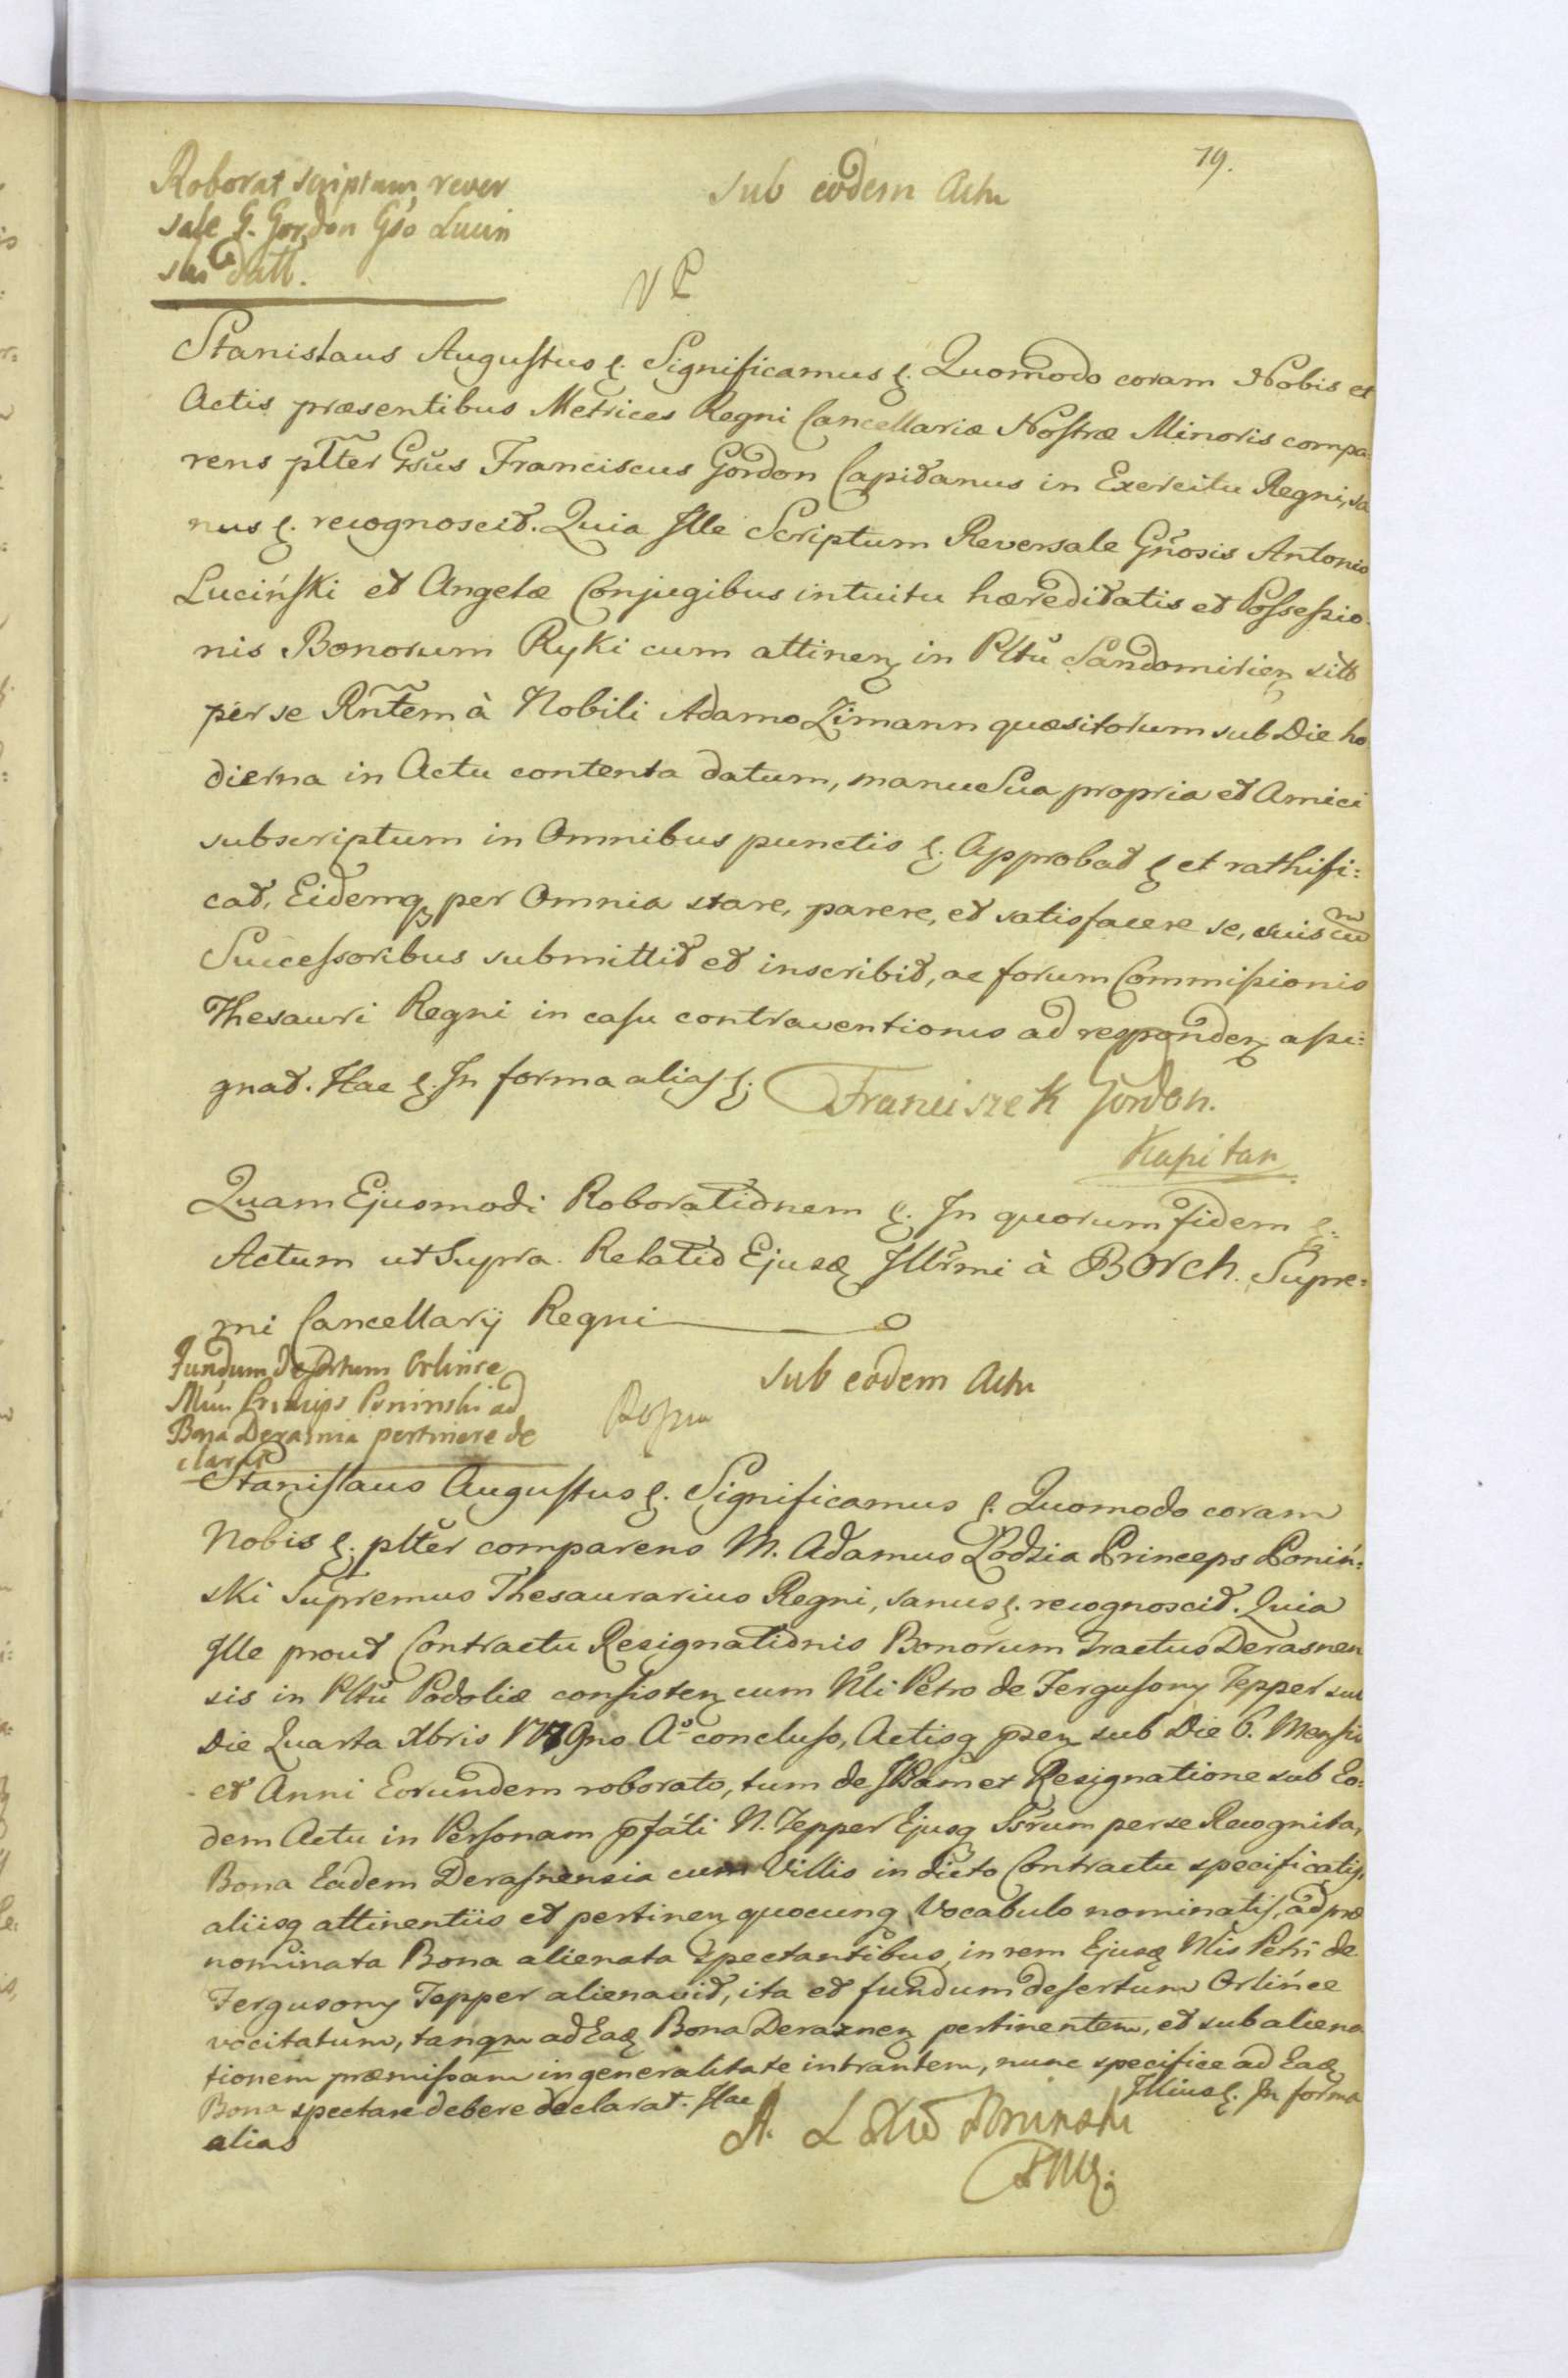 79.
Roborat scriptum rever
sale G. Gordon Gso Lucin
ski datt.
sub eodem Actu
Stanislaus Augustus &. Significamus &. Quomodo coram Nobis et
Actis præsentibus Metrices Regni Cancellariæ Nostræ Minoris compa:
rens pltter Gsus Franciscus Gordon Capitanus in Exercitu Regni, sa
nus &. recognoscit. Quia Ille Scriptum Reversale Gnosis Antonio
Luciński et Angelæ Conjugibus intuitu hæreditatis et Possessio-
nis Bonorum Ryki cum attinen in Pltu Sandomirien sitt
per se Rntem à Nobili Adamo Zimann quæsitorum sub Die ho
dierna in Actu contenta datum, manu Sua propria et Amici
subscriptum in Omnibus punctis &. Approbat & et rathifi:
cat, Eidemq per Omnia stare, parere, et satisfacere se, suis cum
Successoribus submittit et inscribit, ac forum Commissionis
Thesauri Regni in casu contraventionis ad responden assi:
gnat. Hac &. In forma alias &. Franciszek Gordon.
Kapitan
Quam Ejusmodi Roborationem &. In quorum fidem &.
Actum ut Supra. Relatio Ejusd Illrmi à Borch. Supre:
mi Cancellarij Regni
Fundum desertum Orlince
Illm Princips Poninski ad
Bona Deraznia pertinere de
clarat
sub eodem Actu
Stanislaus Augustus &. Significamus &. Quomodo coram
Nobis &. pltter comparens M. Adamus Lodzia Princeps Poniń:
ski Supremus Thesaurarius Regni, sanus &. recognoscit. Quia
Ille prout Contractu Resignationis Bonorum Tractus Derasnen
sis in Pltu Podoliæ consisten cum Nli Petro de Fergusony Tepper sub
Die Quarta Xbris 1779no Ao concluso, Actisq psen sub Die 6. Mensis
et Anni Eorundem roborato, tum de Resignatione sub Eo:
dem Actu in Personam pfati N. Tepper Ejusq Ssrum per se Recognita,
Bona Eadem Derasnensia cum Villis in dicto Contractu specificatis,
aliisq attinentiis et pertinen quocunq Vocabulo nominatis, ad præ
nominata Bona alienata spectantibus, in rem Ejusd Nlis Petri de
Fergusony Tepper alienavit, ita et fundum desertum Orlińce
vocitatum, tanqm ad Ead Bona Deraznen pertinentem, et sub aliena
tionem præmissam in generalitate intrantem, nunc specifice ad Ead
Bona spectare debere declarat. Hac Illius &. In forma
alias
A. Poninski